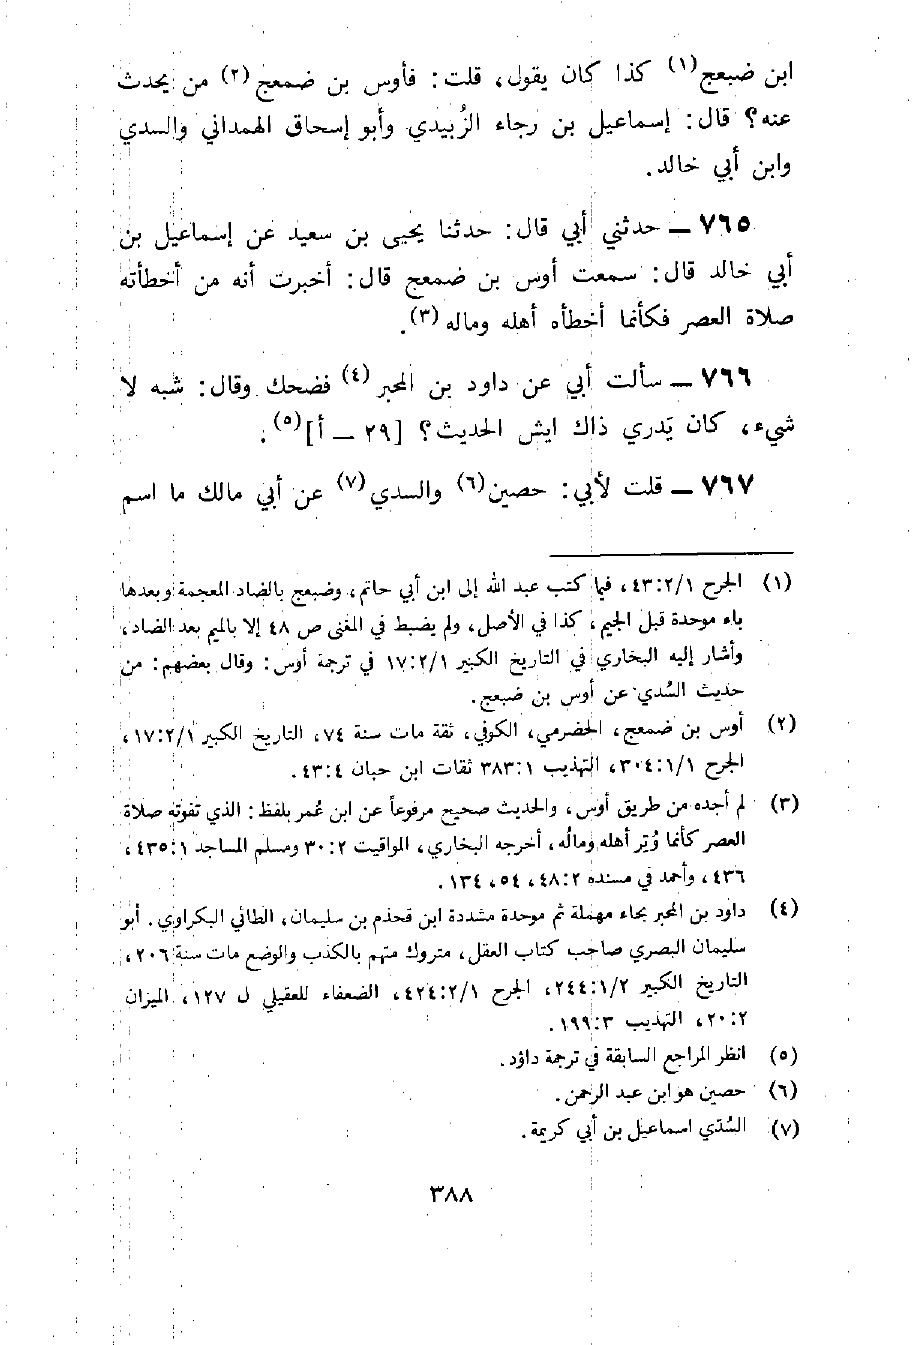 ابن ضبعج(١) كذا كان يقول، قلت: فأوس بن ضمعج(٢) من يحدث
عنه؟ قال: إسماعيل بن رجاء الزُبيدي وأبو إسحاق الهمداني والسدي
وابن أبي خالد.
٧٦٥ ــ حدثني أبي قال: حدثنا يحيى بن سعيد عن إسماعيل بن
أبي خالد قال: سمعت أوس بن ضمعج قال: أخبرت أنه من أخطأته
صلاة العصر فكأنما أخطأه أهله وماله(٣).
٧٦٦ ــ سألت أبي عن داود بن المحبر(٤) فضحك وقال: شبه لا
شيء، كان يَدري ذاك ايش الحديث؟ [٢٩ ــ أ](٥).
٧٦٧ ــ قلت لأبي: حصين(٦) والسدي(٧) عن أبي مالك ما اسم
(١) الجرح ٤٣:٢/١، فيما كتب عبد الله إلى ابن أبي حاتم، وضبعج بالضاد المعجمة وبعدها
باء موحدة قبل الجيم، كذا في الأصل، ولم يضبط في المغنى ص ٤٨ إلا بالميم بعد الضاد،
وأشار إليه البخاري في التاريخ الكبير ١٧:٢/١ في ترجمة أوس: وقال بعضهم: من
حديث السُدي عن أوس بن ضبعج.
(٢) أوس بن ضمعج، الحضرمي، الكوفي، ثقة مات سنة ٧٤، التاريخ الكبير ١٧:٢/١،
الجرح ٣٠٤:١/١، التهذيب ٣٨٣:١ ثقات ابن حبان ٤٣:٤.
(٣) لم أجده من طريق أوس، والحديث صحيح مرفوعاً عن ابن عُمر بلفظ: الذي تفوته صلاة
العصر كأنما وُتِر أهله ومالُه، أخرجه البخاري، المواقيت ٣٠:٢ ومسلم المساجد ٤٣٥:١،
٤٣٦، وأحمد في مسنده ٤٨:٢، ٥٤، ١٣٤.
(٤) داود بن المحبر بحاء مهملة ثم موحدة مشددة ابن قحذم بن سليمان، الطائي البكراوي. أبو
سليمان البصري صاحب كتاب العقل، متروك متهم بالكذب والوضع مات سنة ٢٠٦،
التاريخ الكبير ٢٤٤:١/٢، الجرح ٤٢٤:٢/١، الضعفاء للعقيلي ل ١٢٧، الميزان
٢٠:٢، التهذيب ١٩٩:٣.
(٥) انظر المراجع السابقة في ترجمة داؤد.
(٦) حصين هو ابن عبد الرحمن.
(٧) السُدّي اسماعيل بن أبي كريمة.
٣٨٨